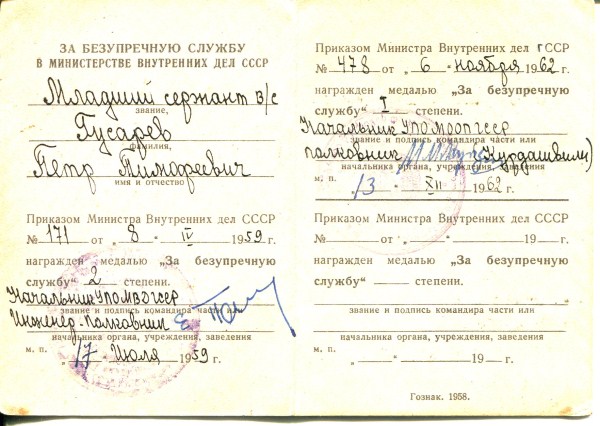 ЗА БЕЗУПРЕЧНУЮ СЛУЖБУ
В МИНИСТЕРСТВЕ ВНУТРЕННИХ ДЕЛ СССР
Младший сержант в/с
звание,
Гусарев
фамилия,
Пётр Тимофеевич
имя и отчество
Приказом Министра Внутренних дел СССР
№ 171 от „ 8 " IV 1959 г.
награжден медалью „За безупречную
службу" 2 степени.
Начальник УПОМВОГССР
звание и подпись командира части или
Инженер-полковник
начальника органа, учреждения, заведения
м. п. „17" Июля 1959 г.
Приказом Министра Внутренних дел ГССР
№ 478 от „ 6 " ноября 1962 г.
награжден медалью „За безупречную
службу" I степени.
Начальник УПОМООПГССР
звание и подпись командира части или
полковник (Курдашвили)
начальника органа, учреждения, заведения
м. п. „13" XII 1962 г.
Приказом Министра Внутренних дел СССР
№ — от „ — " — 19 — г.
награжден медалью „За безупречную
службу" — степени.
звание и подпись командира части или
начальника органа, учреждения, заведения
м. п. „ — " — 19 — г.
Гознак. 1958.